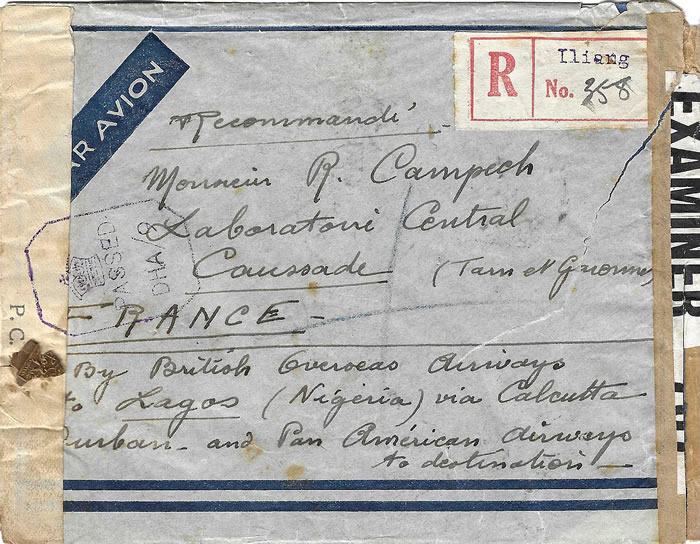 AR AVION
R
Iliang
No. 358
Recommandé
Monsieur R. Campech
Laboratoire Central
Caussade (Tarn et Garonne)
RANCE
By British Overseas Airways
to Lagos (Nigéria) via Calcutta
Durban and Pan Américan Airways
to destination
PASSED
DHA/8
P.C.
EXAMINER